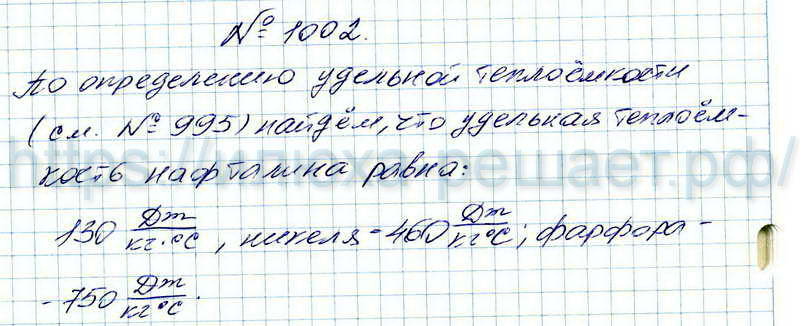 № 1002.
По определению удельной теплоёмкости
(см. № 995) найдём, что удельная теплоём-
кость нафталина равна:
130 Дж/кг·°С, никеля - 460 Дж/кг°С; фарфора -
- 750 Дж/кг°С.